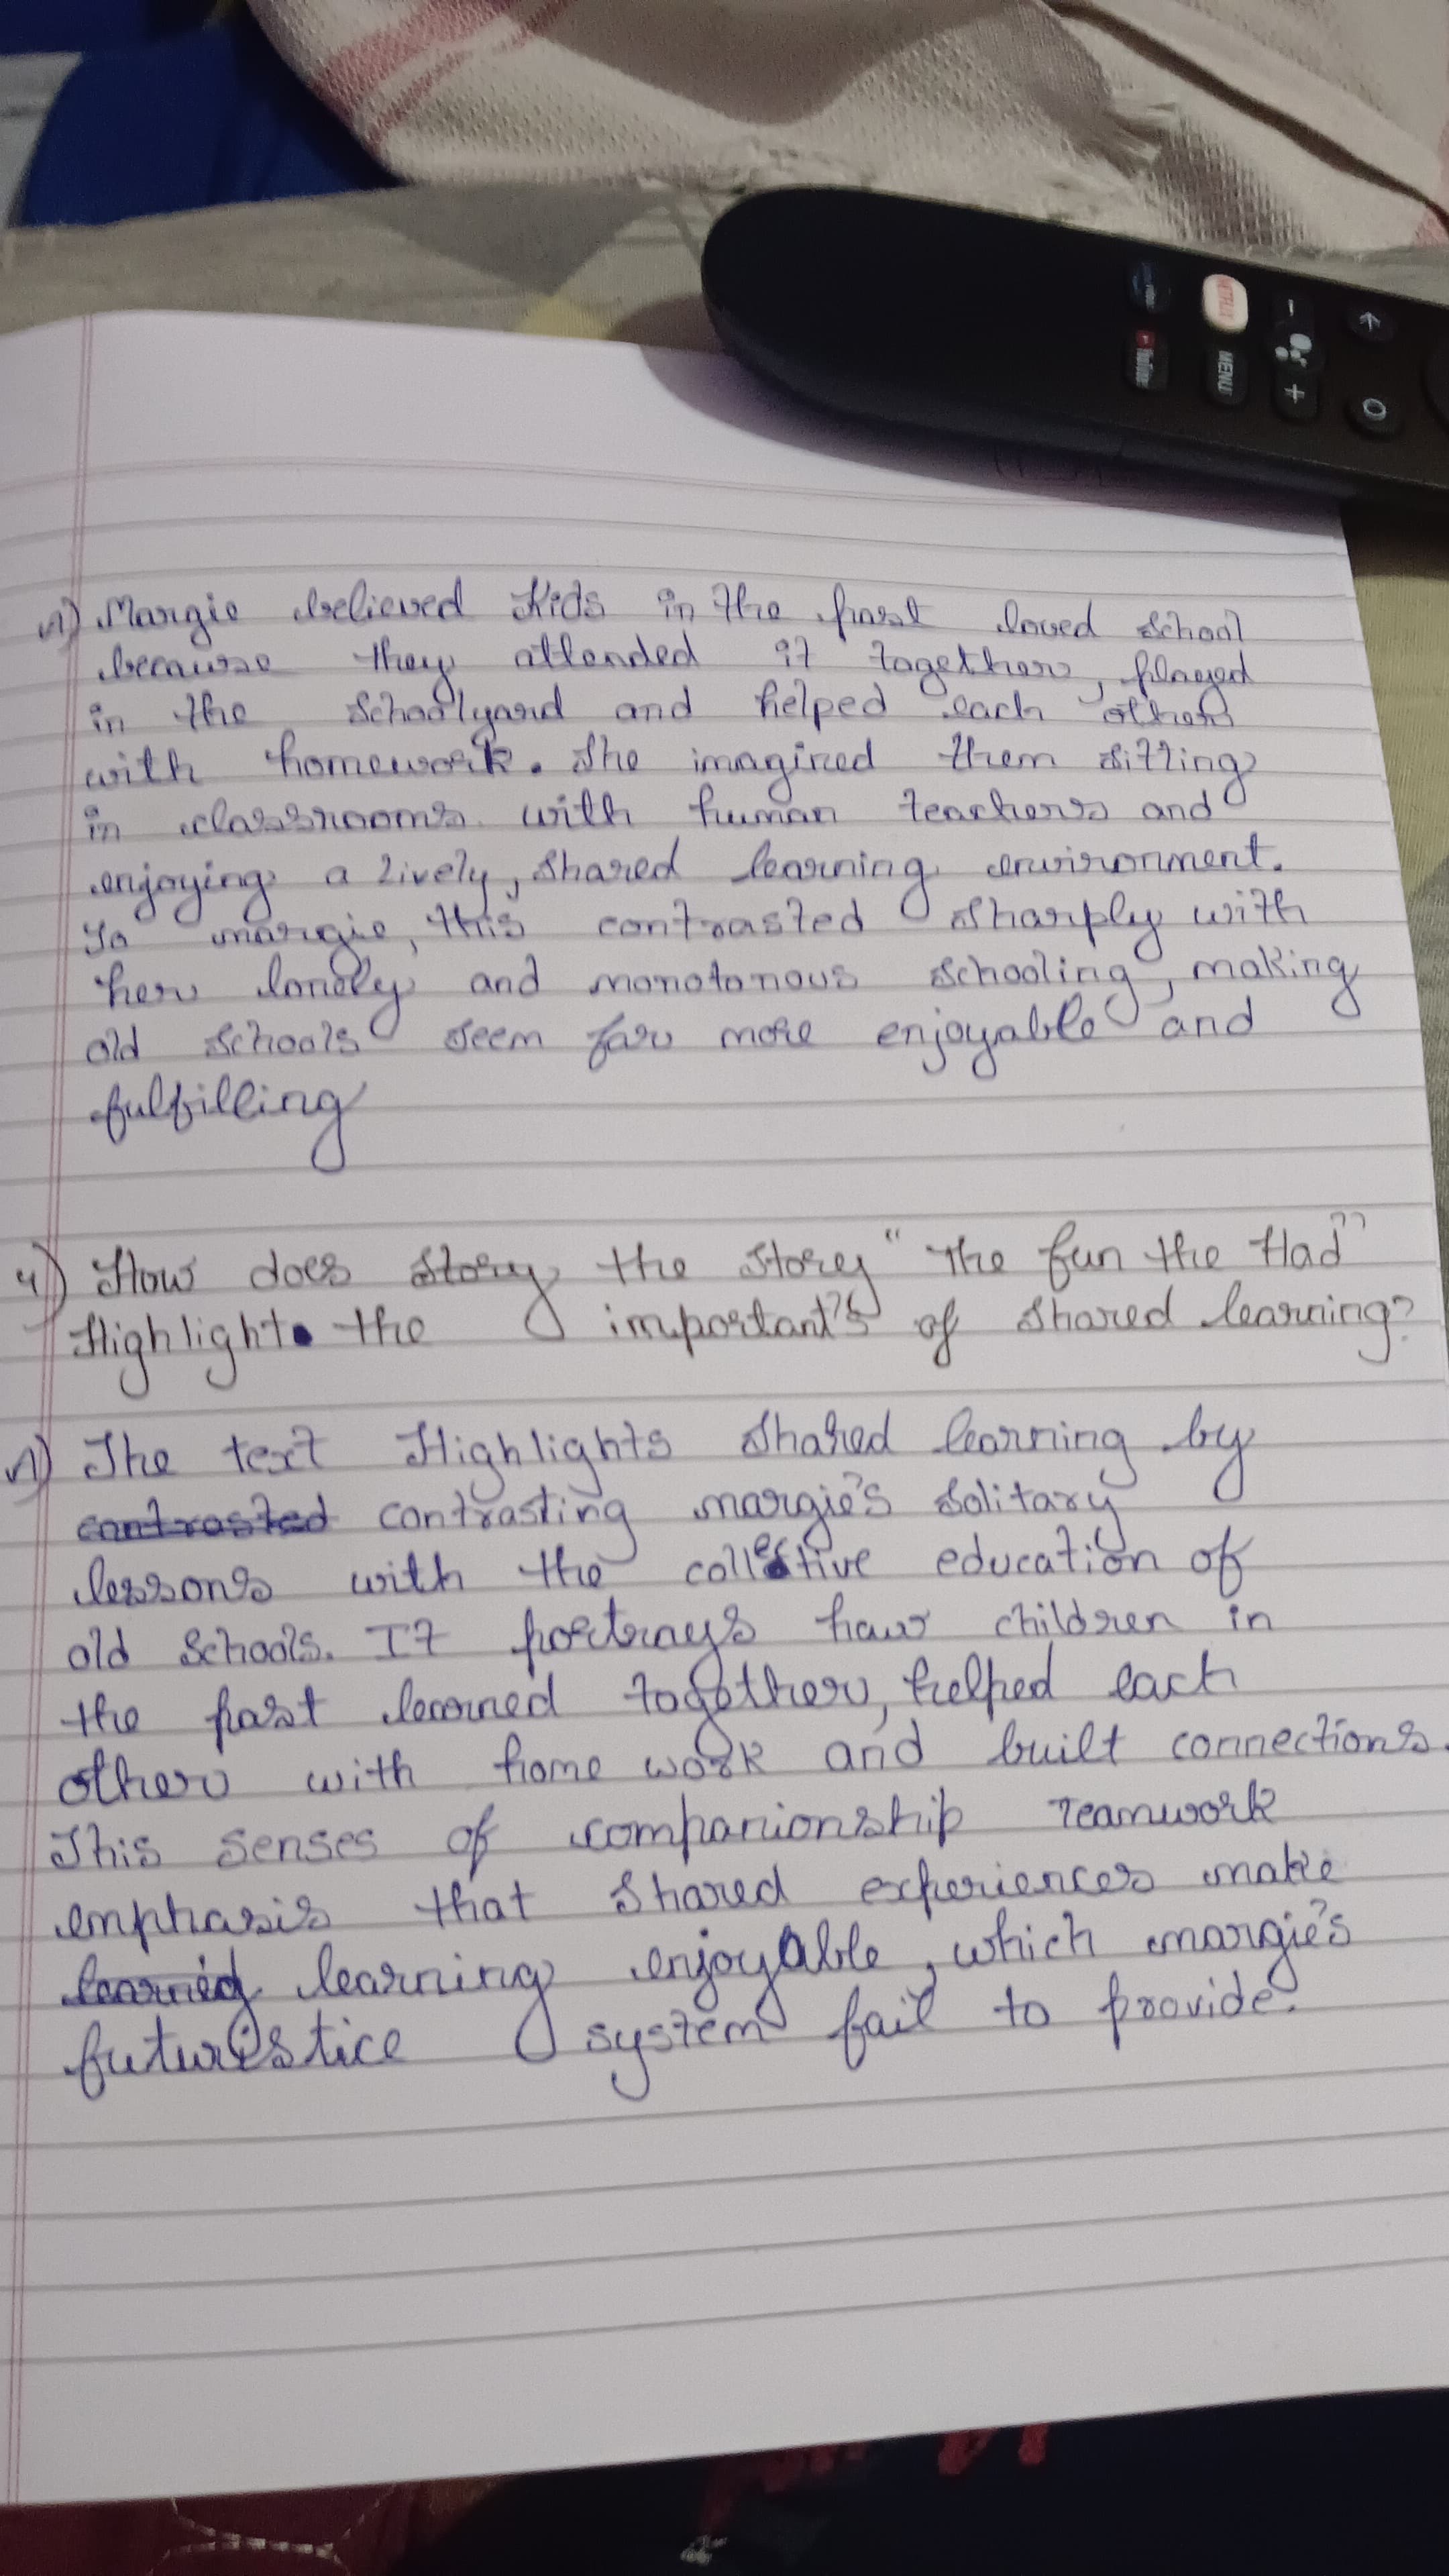 NETFLIX
YouTube
MENU
A) Margie believed Kids in the past loved school
because they attended it together, played
in the schoolyard and helped each other
with homework. She imagined them sitting
in classrooms with human teachers and
enjoying a lively, shared learning environment.
To margie, this contrasted sharply with
her lonely and monotonous schooling, making
old schools seem far more enjoyable and
fulfilling
4) How does story the story "The fun the Had"
Highlight the important's of shared learning?
A) The text Highlights shared learning by
contrasted contrasting margie's solitary
lessons with the collective education of
old schools. It portrays how children in
the past learned together, helped each
other with home work and built connections.
This senses of companionship Teamwork
emphasis that shared experiences make
learnig learning enjoyable, which margie's
futuristice system fail to provide.